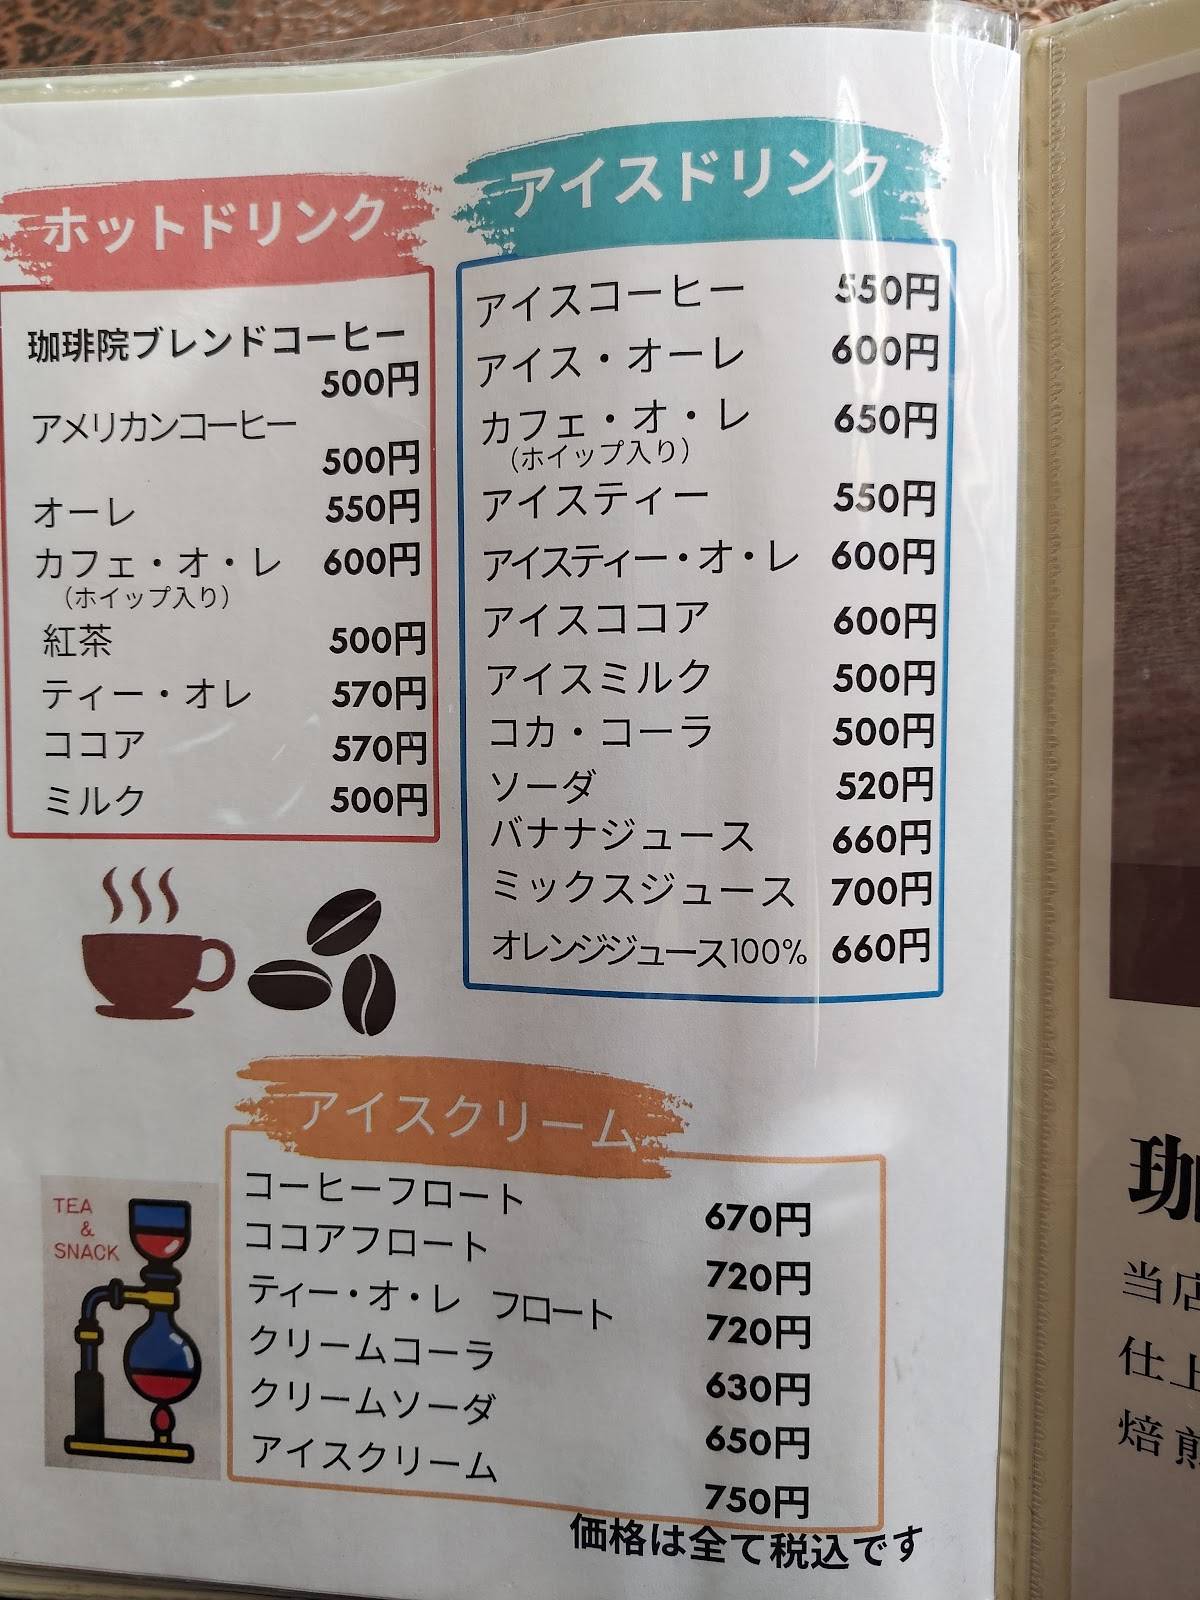 ホットドリンク
珈琲院ブレンドコーヒー
500円
アメリカンコーヒー
500円
オーレ 550円
カフェ・オ・レ 600円
(ホイップ入り)
紅茶 500円
ティー・オレ 570円
ココア 570円
ミルク 500円
アイスドリンク
アイスコーヒー 550円
アイス・オーレ 600円
カフェ・オ・レ 650円
(ホイップ入り)
アイスティー 550円
アイスティー・オ・レ 600円
アイスココア 600円
アイスミルク 500円
コカ・コーラ 500円
ソーダ 520円
バナナジュース 660円
ミックスジュース 700円
オレンジジュース100% 660円
アイスクリーム
コーヒーフロート 670円
ココアフロート 720円
ティー・オ・レ フロート 720円
クリームコーラ 630円
クリームソーダ 650円
アイスクリーム 750円
TEA
&
SNACK
価格は全て税込です
珈
当店
仕上
焙煎